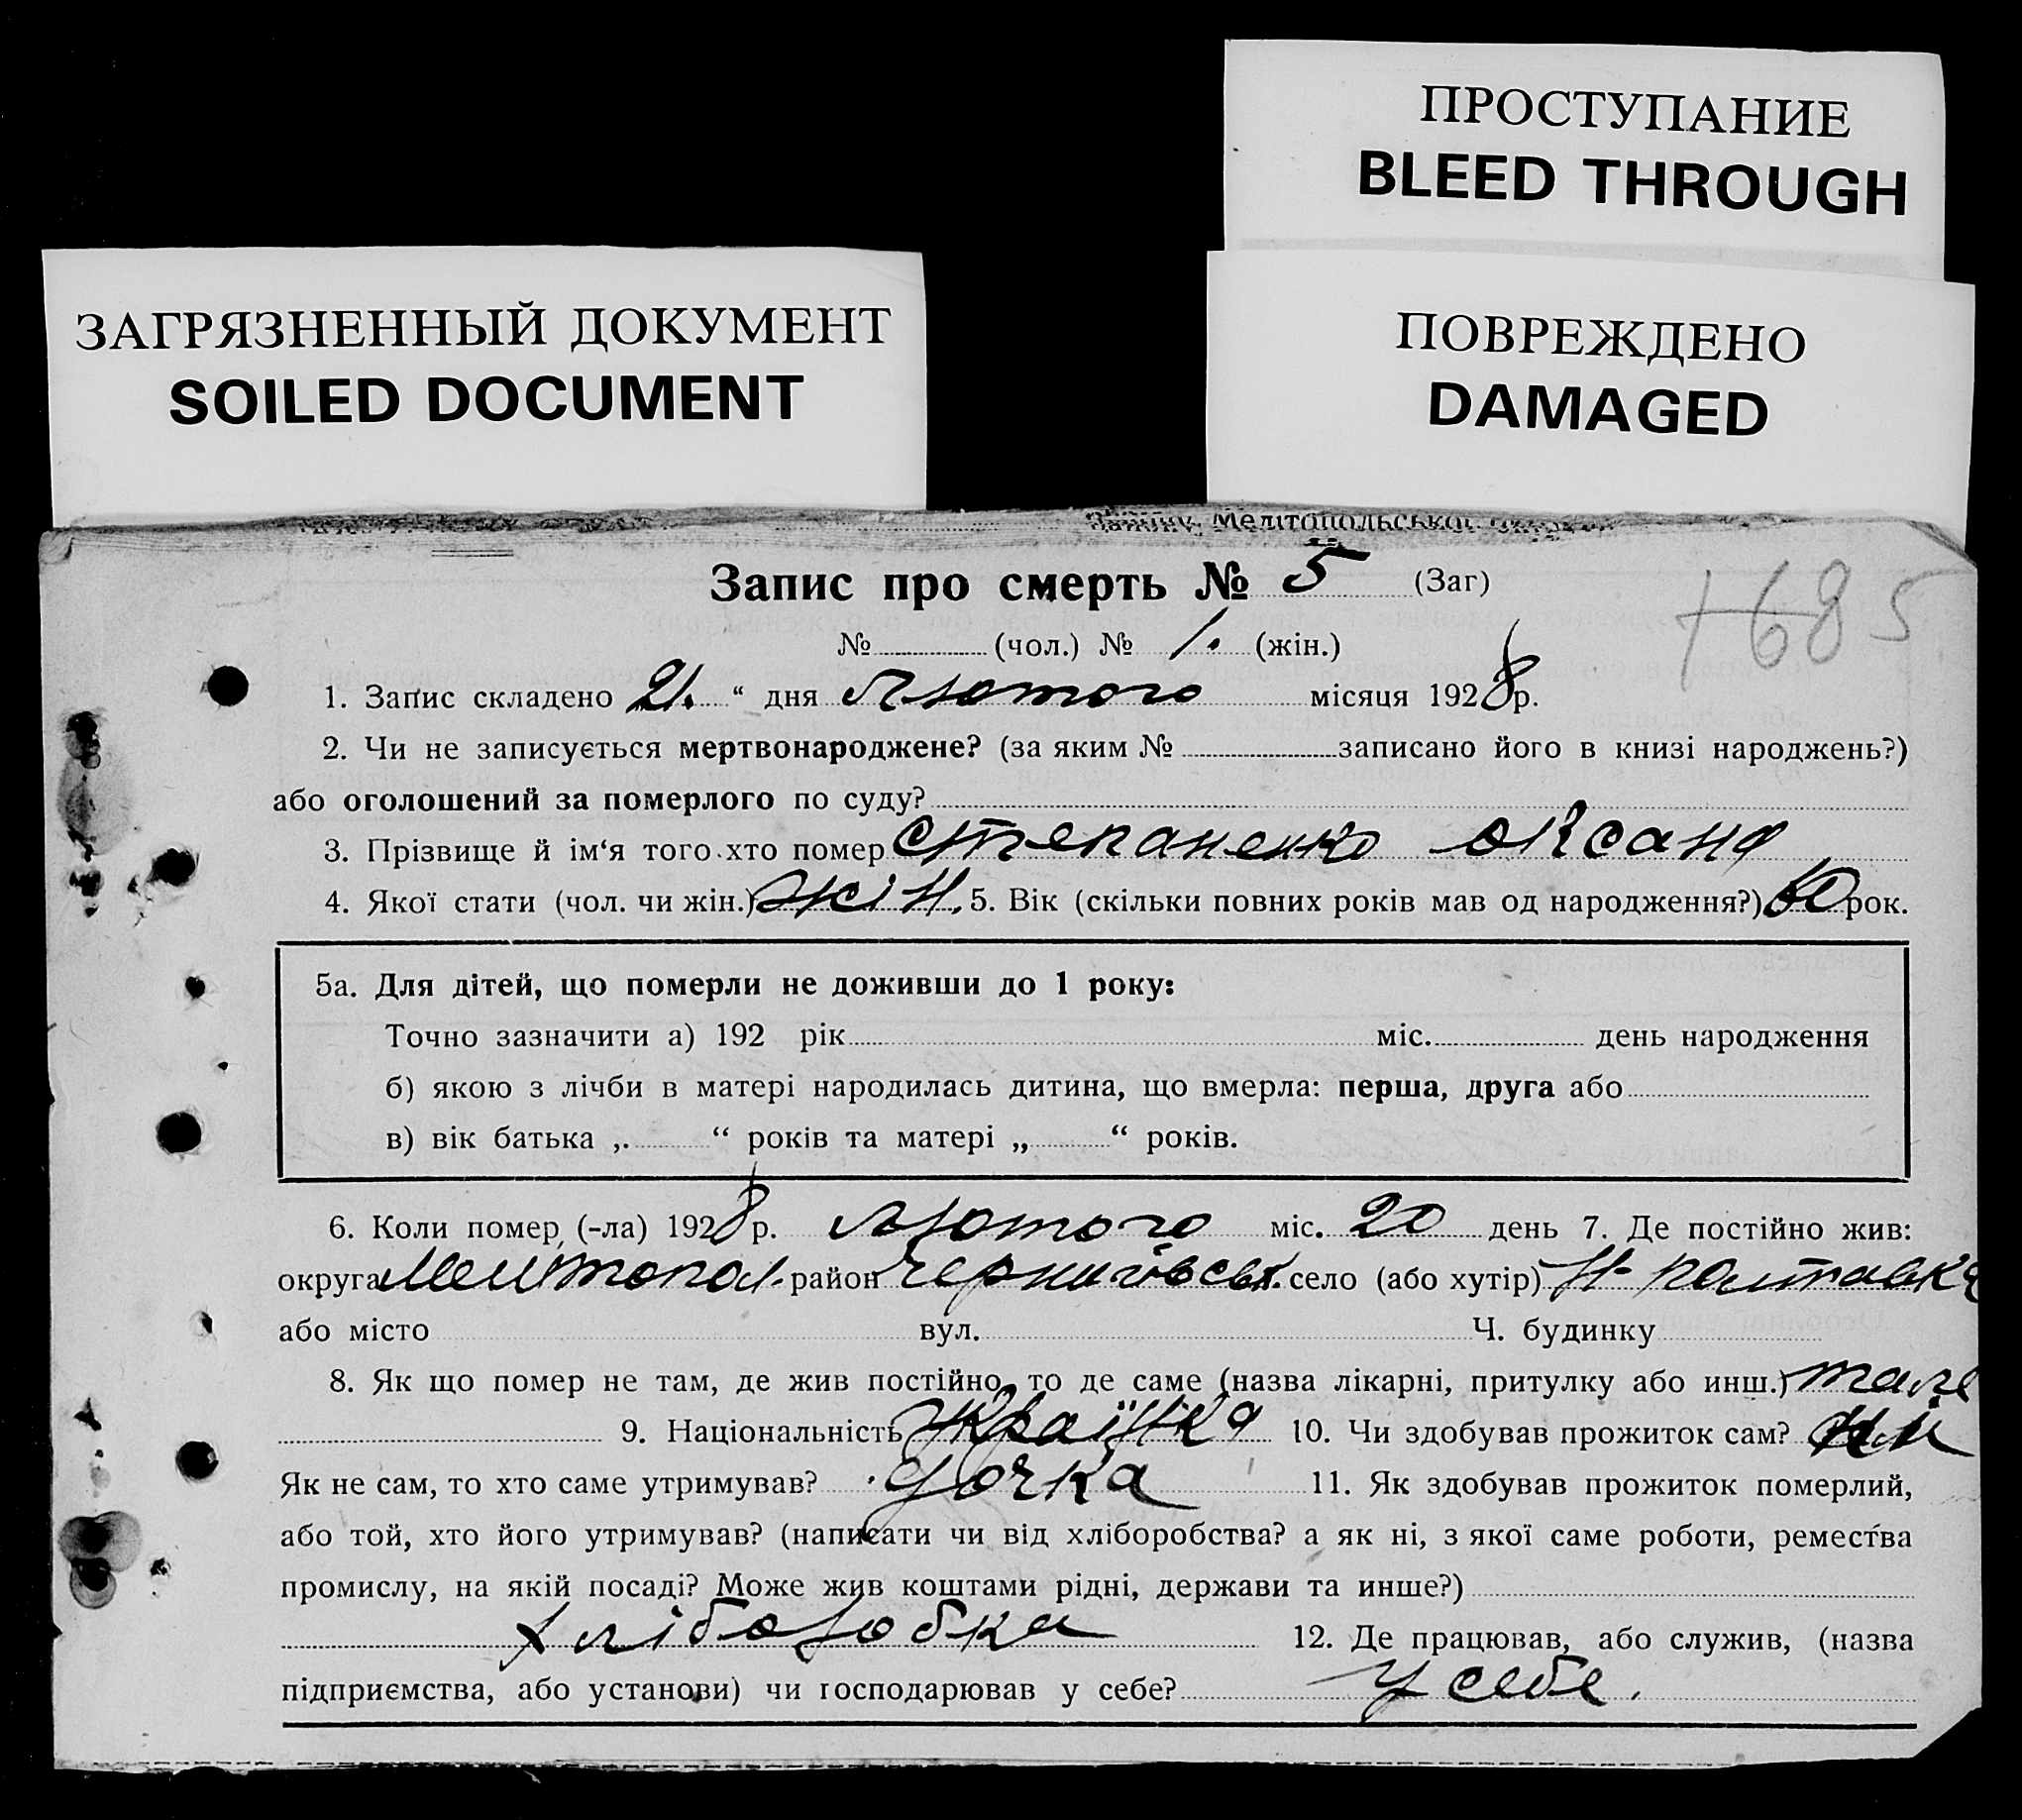 ПРОСТУПАНИЕ
BLEED THROUGH
ЗАГРЯЗНЕННЫЙ ДОКУМЕНТ
SOILED DOCUMENT
ПОВРЕЖДЕНО
DAMAGED
Мелітопольської
Запис про смерть № 5 (Заг)
+685
№ (чол.) № 1. (жін.)
1. Запис складено 21. “ дня Лютого місяця 1928 р.
2. Чи не записується мертвонароджене? (за яким № записано його в книзі народжень?)
або оголошений за померлого по суду?
3. Прізвище й ім‘я того хто помер Степаненко Оксана
4. Якої стати (чол. чи жін.) жін. 5. Вік (скільки повних років мав од народження?) 60 рок.
5а. Для дітей, що померли не доживши до 1 року:
Точно зазначити а) 192 рік міс. день народження
б) якою з лічби в матері народилась дитина, що вмерла: перша, друга або
в) вік батька „ “ років та матері „ “ років.
6. Коли помер (-ла) 1928 р. Лютого міс. 20 день 7. Де постійно жив:
округа Мелітопол. район Чернигівськ. село (або хутір) Н-Полтавка
або місто вул. Ч. будинку
8. Як що помер не там, де жив постійно, то де саме (назва лікарні, притулку або инш.)
9. Національність Українка 10. Чи здобував прожиток сам? ні
Як не сам, то хто саме утримував? дочка 11. Як здобував прожиток померлий,
або той, хто його утримував? (написати чи від хліборобства? а як ні, з якої саме роботи, ремества
промислу, на якій посаді? Може жив коштами рідні, держави та инше?)
хліборобка 12. Де працював, або служив, (назва
підприємства, або установи) чи господарював у себе? У себе.